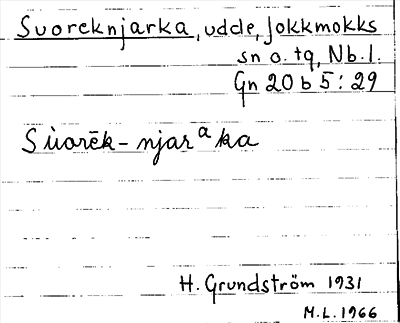 Suoreknjarka, udde, Jokkmokks
sn o. tg, Nb.l.
Gn 20 b 5: 29
Sùorēk-njarᵃka
H. Grundström 1931
M.L. 1966